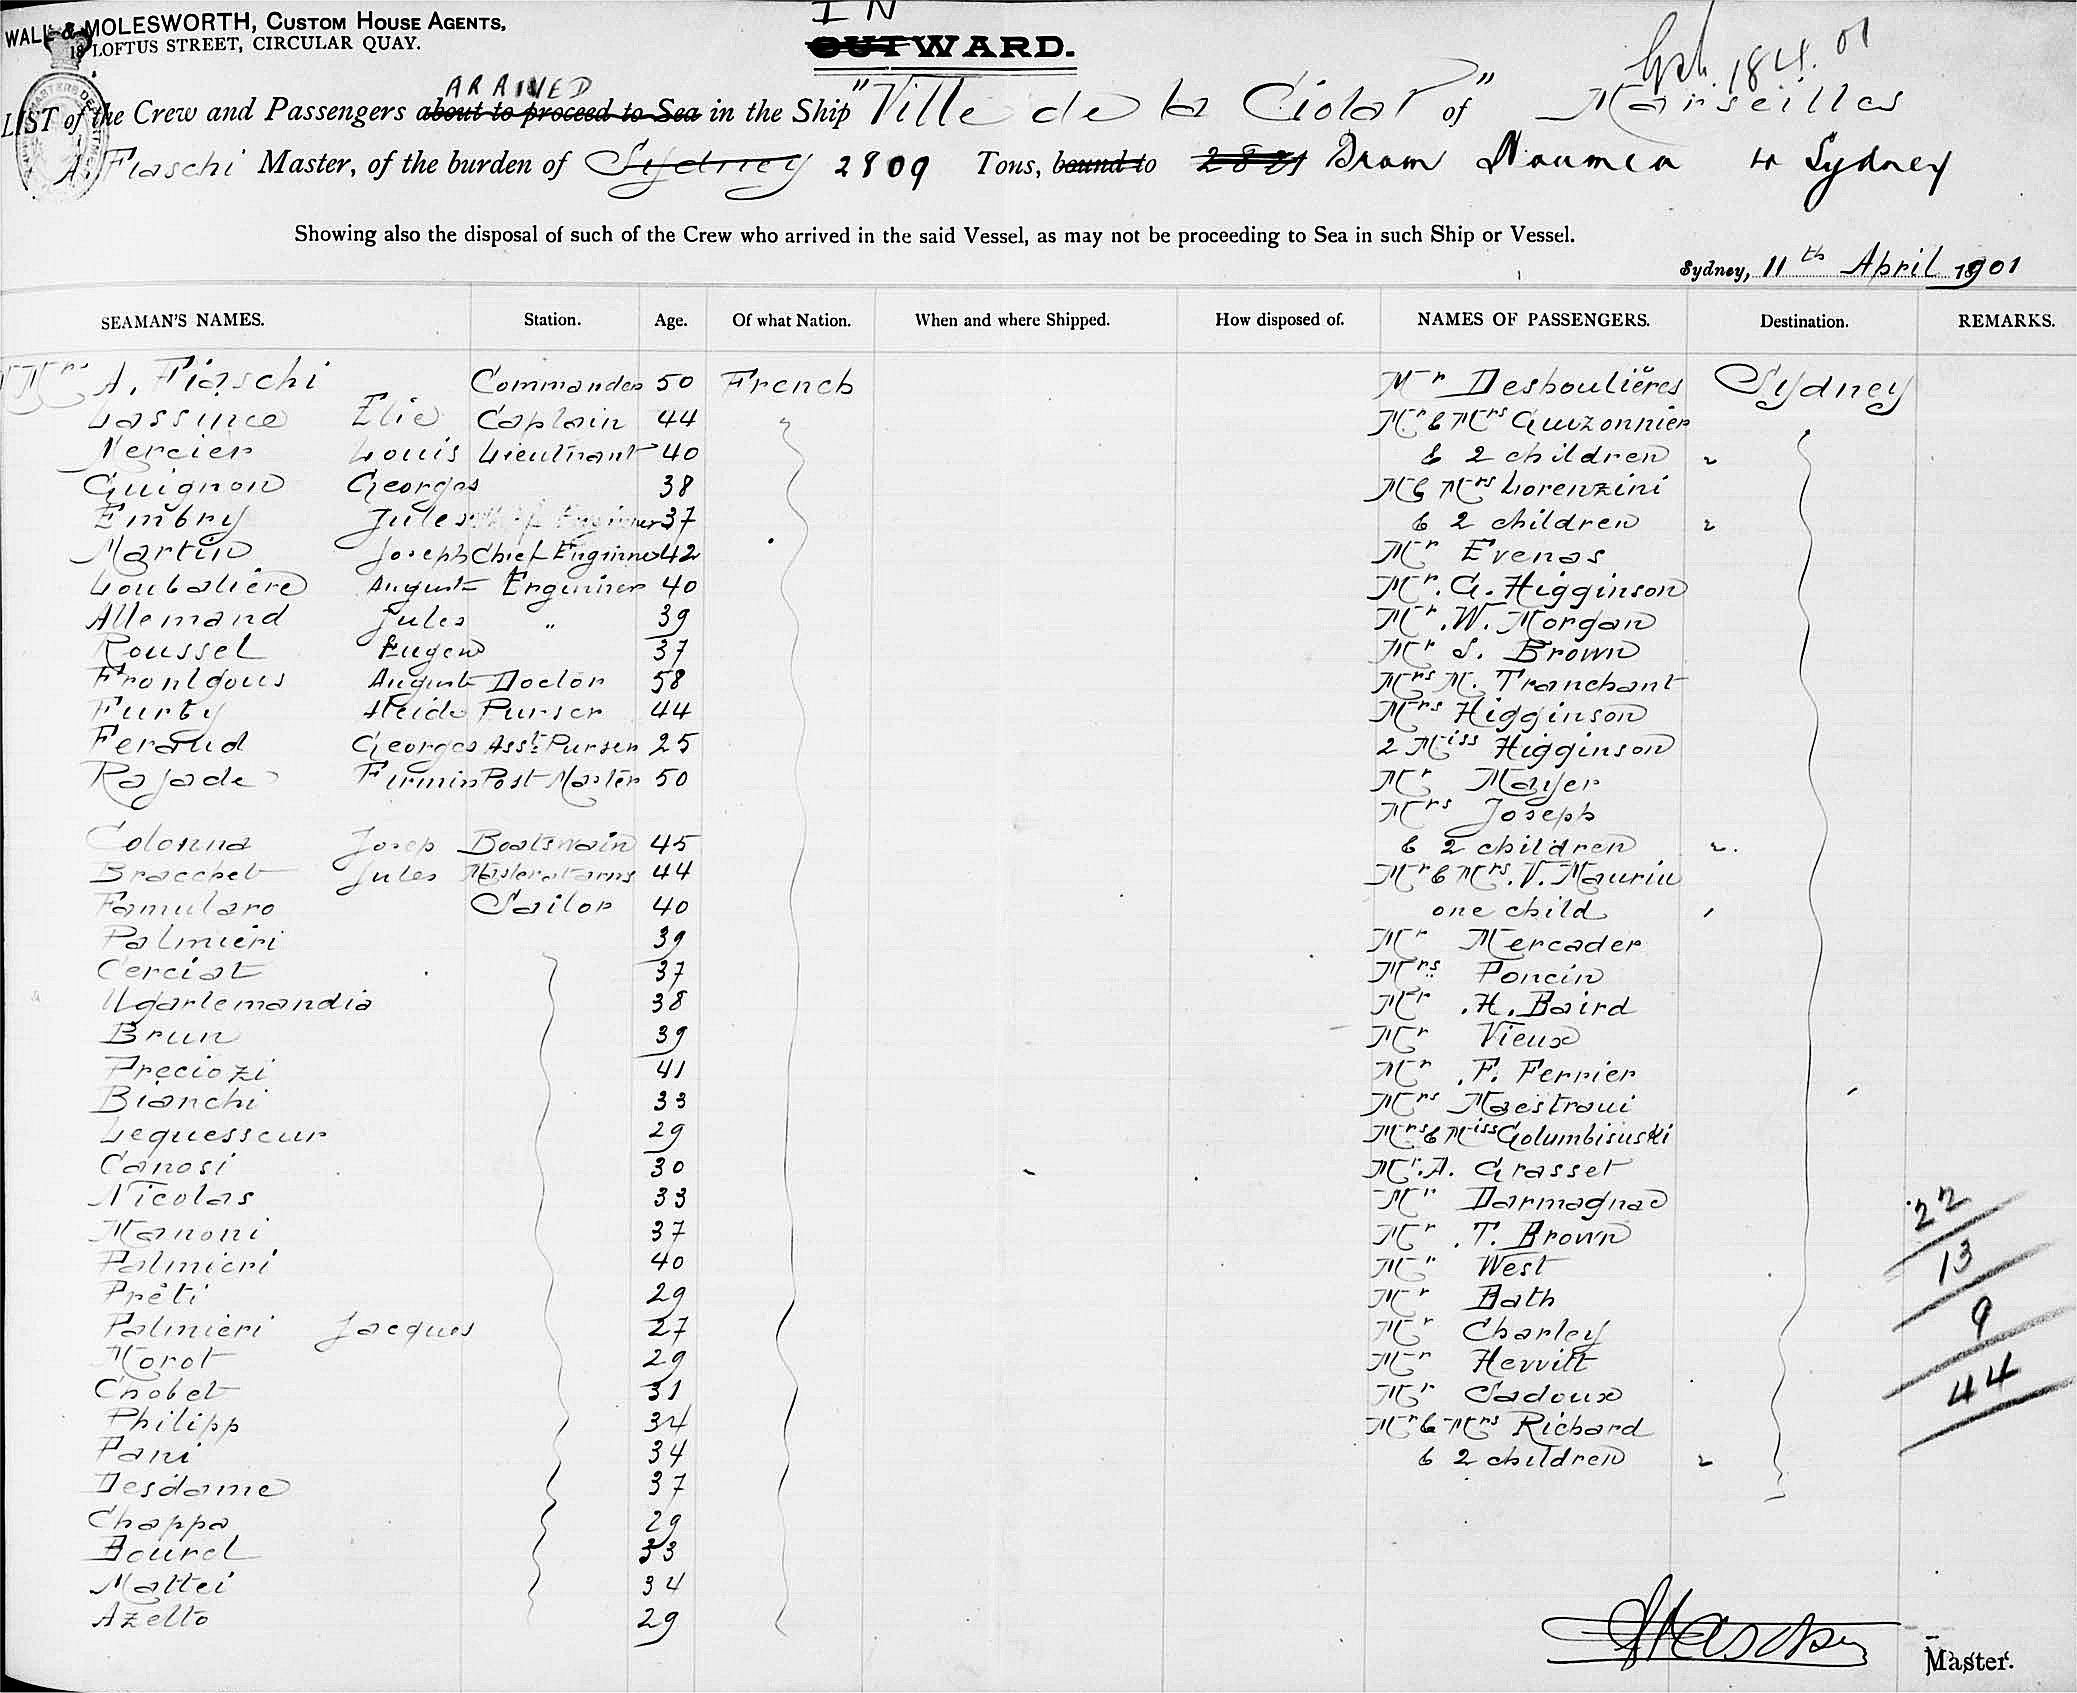 WALL & MOLESWORTH, CUSTOM HOUSE AGENTS,
18 LOFTUS STREET, CIRCULAR QUAY.
IN
OUTWARD.
184.01
ARRIVED
LIST of the Crew and Passengers about to proceed to Sea in the Ship "Ville de la Ciotat" of Marseilles
A. Fiaschi Master, of the burden of Sydney 2809 Tons, bound to from Noumea to Sydney
Showing also the disposal of such of the Crew who arrived in the said Vessel, as may not be proceeding to Sea in such Ship or Vessel.
Sydney, 11th April 1901
SEAMAN'S NAMES. Station. Age. Of what Nation. When and where Shipped. How disposed of. NAMES OF PASSENGERS. Destination. REMARKS.
Mr A. Fiaschi Commander 50 French Mr Desboulières Sydney
Lassince Elie Captain 44 " Mr & Mrs Guizonnier
Mercier Louis Lieutnant 40 & 2 children
Guignon Georges 38 M & Mrs Lorenzini
Embry Jules 37 & 2 children
Martin Joseph Chief Enginner 42 Mr Evenas
Loubalière August Enginner 40 Mr. G. Higginson
Allemand Jules " 39 Mr. W. Morgan
Roussel Eugen 37 Mr S. Brown
Frontgous August Doctor 58 Mrs M. Tranchant
Furby Purser 44 Mrs Higginson
Feraud Georges Asst Purser 25 2 Miss Higginson
Rajade Firmin Post Master 50 Mr Mayer
Mrs Joseph
Colonna Josep Boatswain 45 & 2 children
Bracchet Jules Master at arms 44 Mr & Mrs. V. Maurin
Famularo Sailor 40 one child
Palmieri 39 Mr Mercader
Cerciat 37 Mrs Poncin
Ugartemandia 38 Mr H. Baird
Brun 39 Mr Vieux
Preciozi 41 Mr F. Ferrier
Bianchi 33 Mrs Maestraui
Lequesseur 29 Mrs & Miss Golumbisuski
Canosi 30 Mr. A. Grasset
Nicolas 33 M" Darmagnac 22
Manoni 37 Mr T. Brown 13
Palmieri 40 M" West
Prêti 29 Mr Bath 9
Palmieri Jacques 27 Mr Charley
Morot 29 Mr Hewitt 44
Chobet 31 Mr Cadoux
Philipp 34 Mr & Mrs Richard
Pani 34 & 2 children
Desdame 37
Chappa 29
Bourel 33
Mattei 34
Azelto 29
Master.